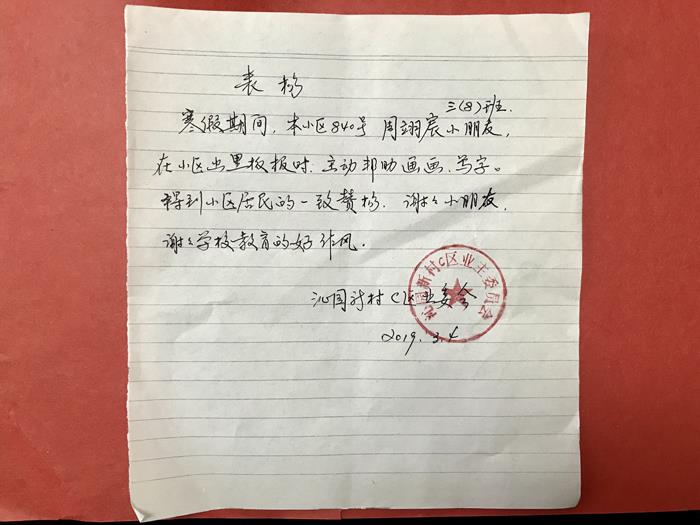 表扬
三(8)班
寒假期间,本小区840号 周翊宸小朋友,
在小区出黑板报时.主动帮助画画.写字。
得到小区居民的一致赞扬. 谢谢小朋友.
谢谢学校教育的好作风.
沁园新村C区业委会
2019.3.4
新村C区业主委员会